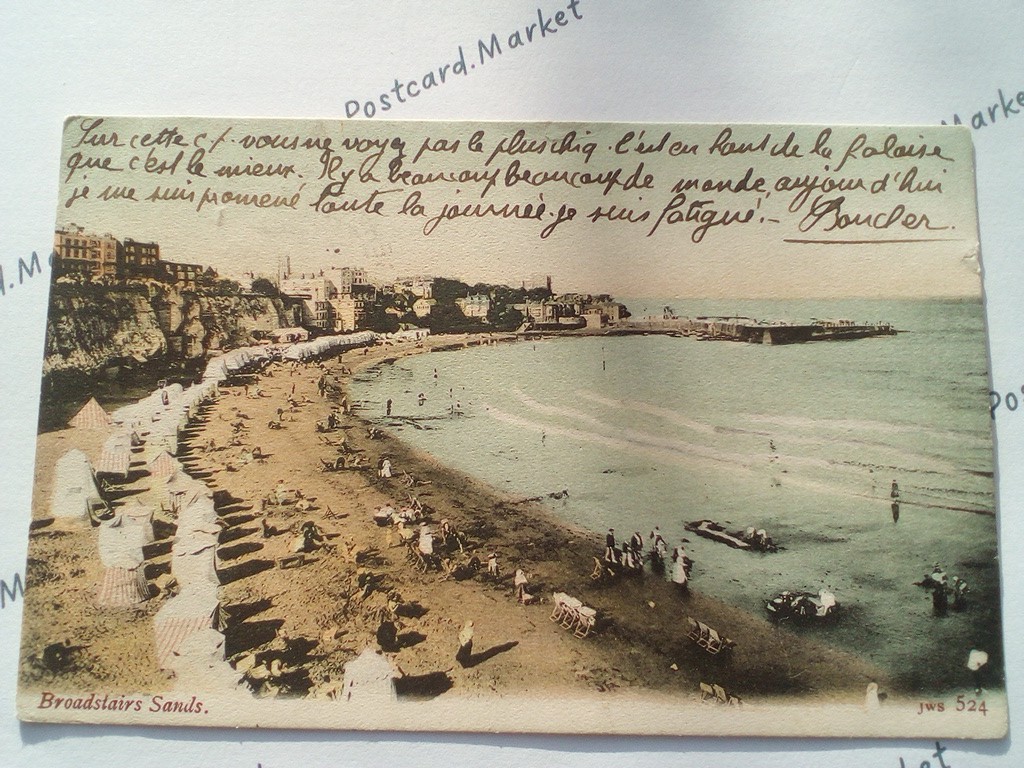 Postcard.Market
Market
Sur cette c.p. vous ne voyez pas le plus chiq. C'est en haut de la falaise
que c'est le mieux. Il y a beaucoup beaucoup de monde, aujourd'hui
je me suis promené toute la journée. je suis fatigué. -
Broadstairs Sands.
JWS 524